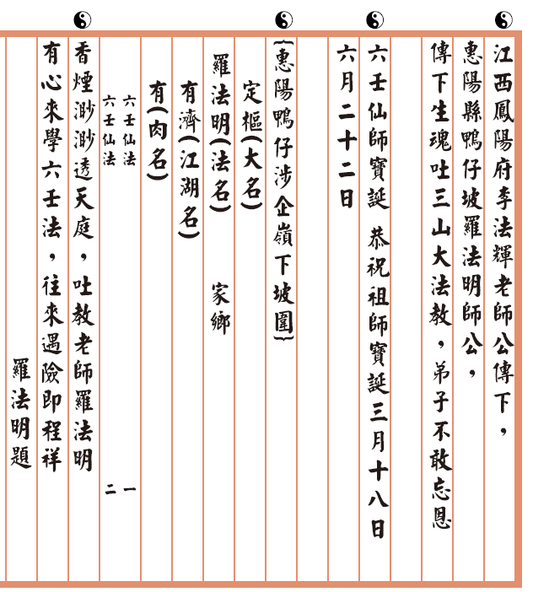 江西鳳陽府李法輝老師公傳下，
惠陽縣鴨仔坡羅法明師公，
傳下生魂吐三山大法教，弟子不敢忘恩
六壬仙師寶誕 恭祝祖師寶誕三月十八日
六月二十二日
(惠陽鴨仔涉企嶺下坡圍)
定樞(大名)
羅法明(法名) 家鄉
有濟(江湖名)
有(肉名)
六壬仙法 一
六壬仙法 二
香煙渺渺透天庭，吐教老師羅法明
有心來學六壬法，往來遇險即程祥
羅法明題